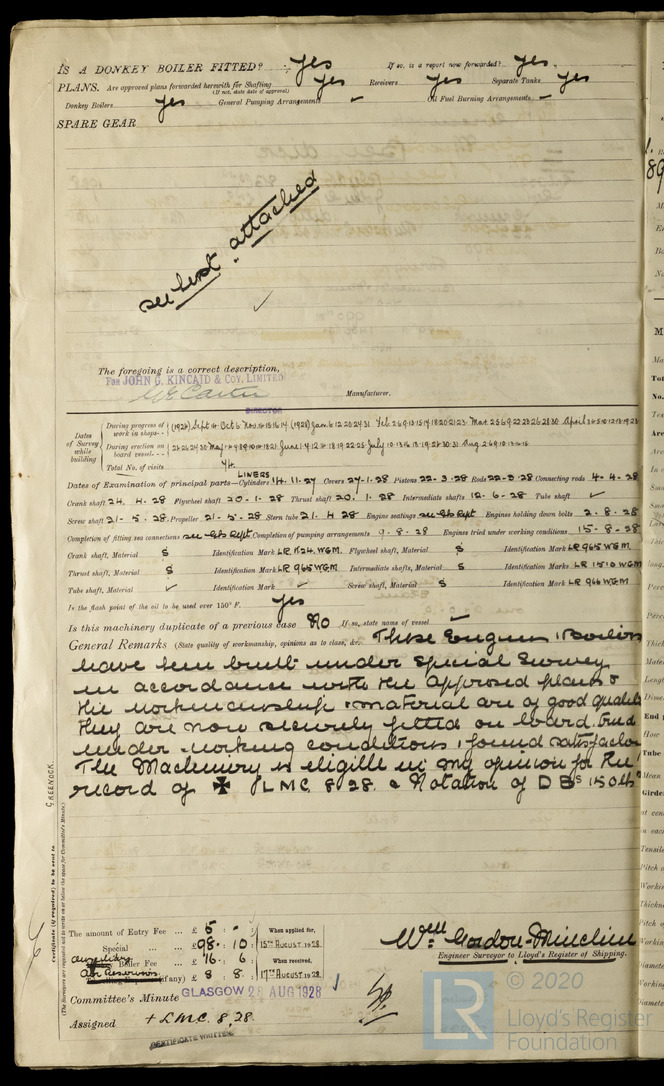 IS A DONKEY BOILER FITTED? Yes If so, is a report now forwarded? Yes.
PLANS. Are approved plans forwarded herewith for Shafting Yes Receivers Yes Separate Tanks Yes
(If not, state date of approval)
Donkey Boilers Yes General Pumping Arrangements – Oil Fuel Burning Arrangements –
SPARE GEAR
see list attached
The foregoing is a correct description,
FOR JOHN G. KINCAID & COY. LIMITED
Manufacturer.
DIRECTOR
Dates of Survey while building
During progress of work in shops - -
During erection on board vessel - - -
Total No. of visits 74.
LINERS
Dates of Examination of principal parts—Cylinders 14.11.27 Covers 27-1-28 Pistons 22-3-28 Rods 22-3-28 Connecting rods 4-4-28
Crank shaft 24.4.28 Flywheel shaft 20-1-28 Thrust shaft 20.1.28 Intermediate shafts 12.6-28 Tube shaft ✓
Screw shaft 21-5.28 Propeller 21-5.28 Stern tube 21.4.28 Engine seatings see Gls Rept Engines holding down bolts 2.8-28
Completion of fitting sea connections see Gls Rept Completion of pumping arrangements 9.8.28 Engines tried under working conditions 15.8-28
Crank shaft, Material S Identification Mark Flywheel shaft, Material S Identification Mark LR 965 WGM
Thrust shaft, Material S Identification Mark LR 965 WGM Intermediate shafts, Material S Identification Marks LR 1510 WGM
Tube shaft, Material ✓ Identification Mark ✓ Screw shaft, Material S Identification Mark LR 966 WGM
Is the flash point of the oil to be used over 150° F. Yes
Is this machinery duplicate of a previous case No If so, state name of vessel –
General Remarks (State quality of workmanship, opinions as to class, &c. These Engines & Boilers
have been built under Special Survey
in accordance with the approved plans &
the workmanship & material are of good quality
they are now securely fitted on board, tried
under working conditions & found satisfactory
The Machinery is eligible in my opinion for the
record of ✠ LMC 8.28. & Notation of DBs 150 lbs
GREENOCK.
Certificate (if required) to be sent to
(The Surveyors are requested not to write on or below the space for Committee's Minute.)
The amount of Entry Fee ... £ 5 : - : When applied for,
Special ... £ 98. 10 : 15TH AUGUST 1928
Boiler Fee ... £ 16 : 6 When received,
Air Reservoirs (if any) £ 8 : 8. 17TH AUGUST 1928
Wm Gordon-Minchin
Engineer Surveyor to Lloyd's Register of Shipping.
Committee's Minute GLASGOW 28 AUG 1928
Assigned + L.M.C. 8,28.
CERTIFICATE WRITTEN
LR © 2020
Lloyd's Register
Foundation